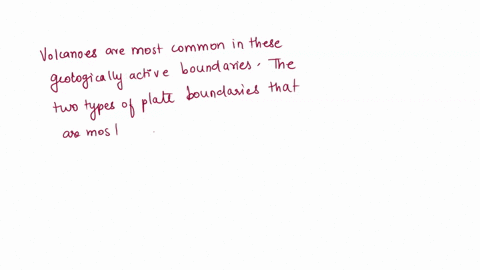 Volcanoes are most common in these
geologically active boundaries. The
two types of plate boundaries that
are mos